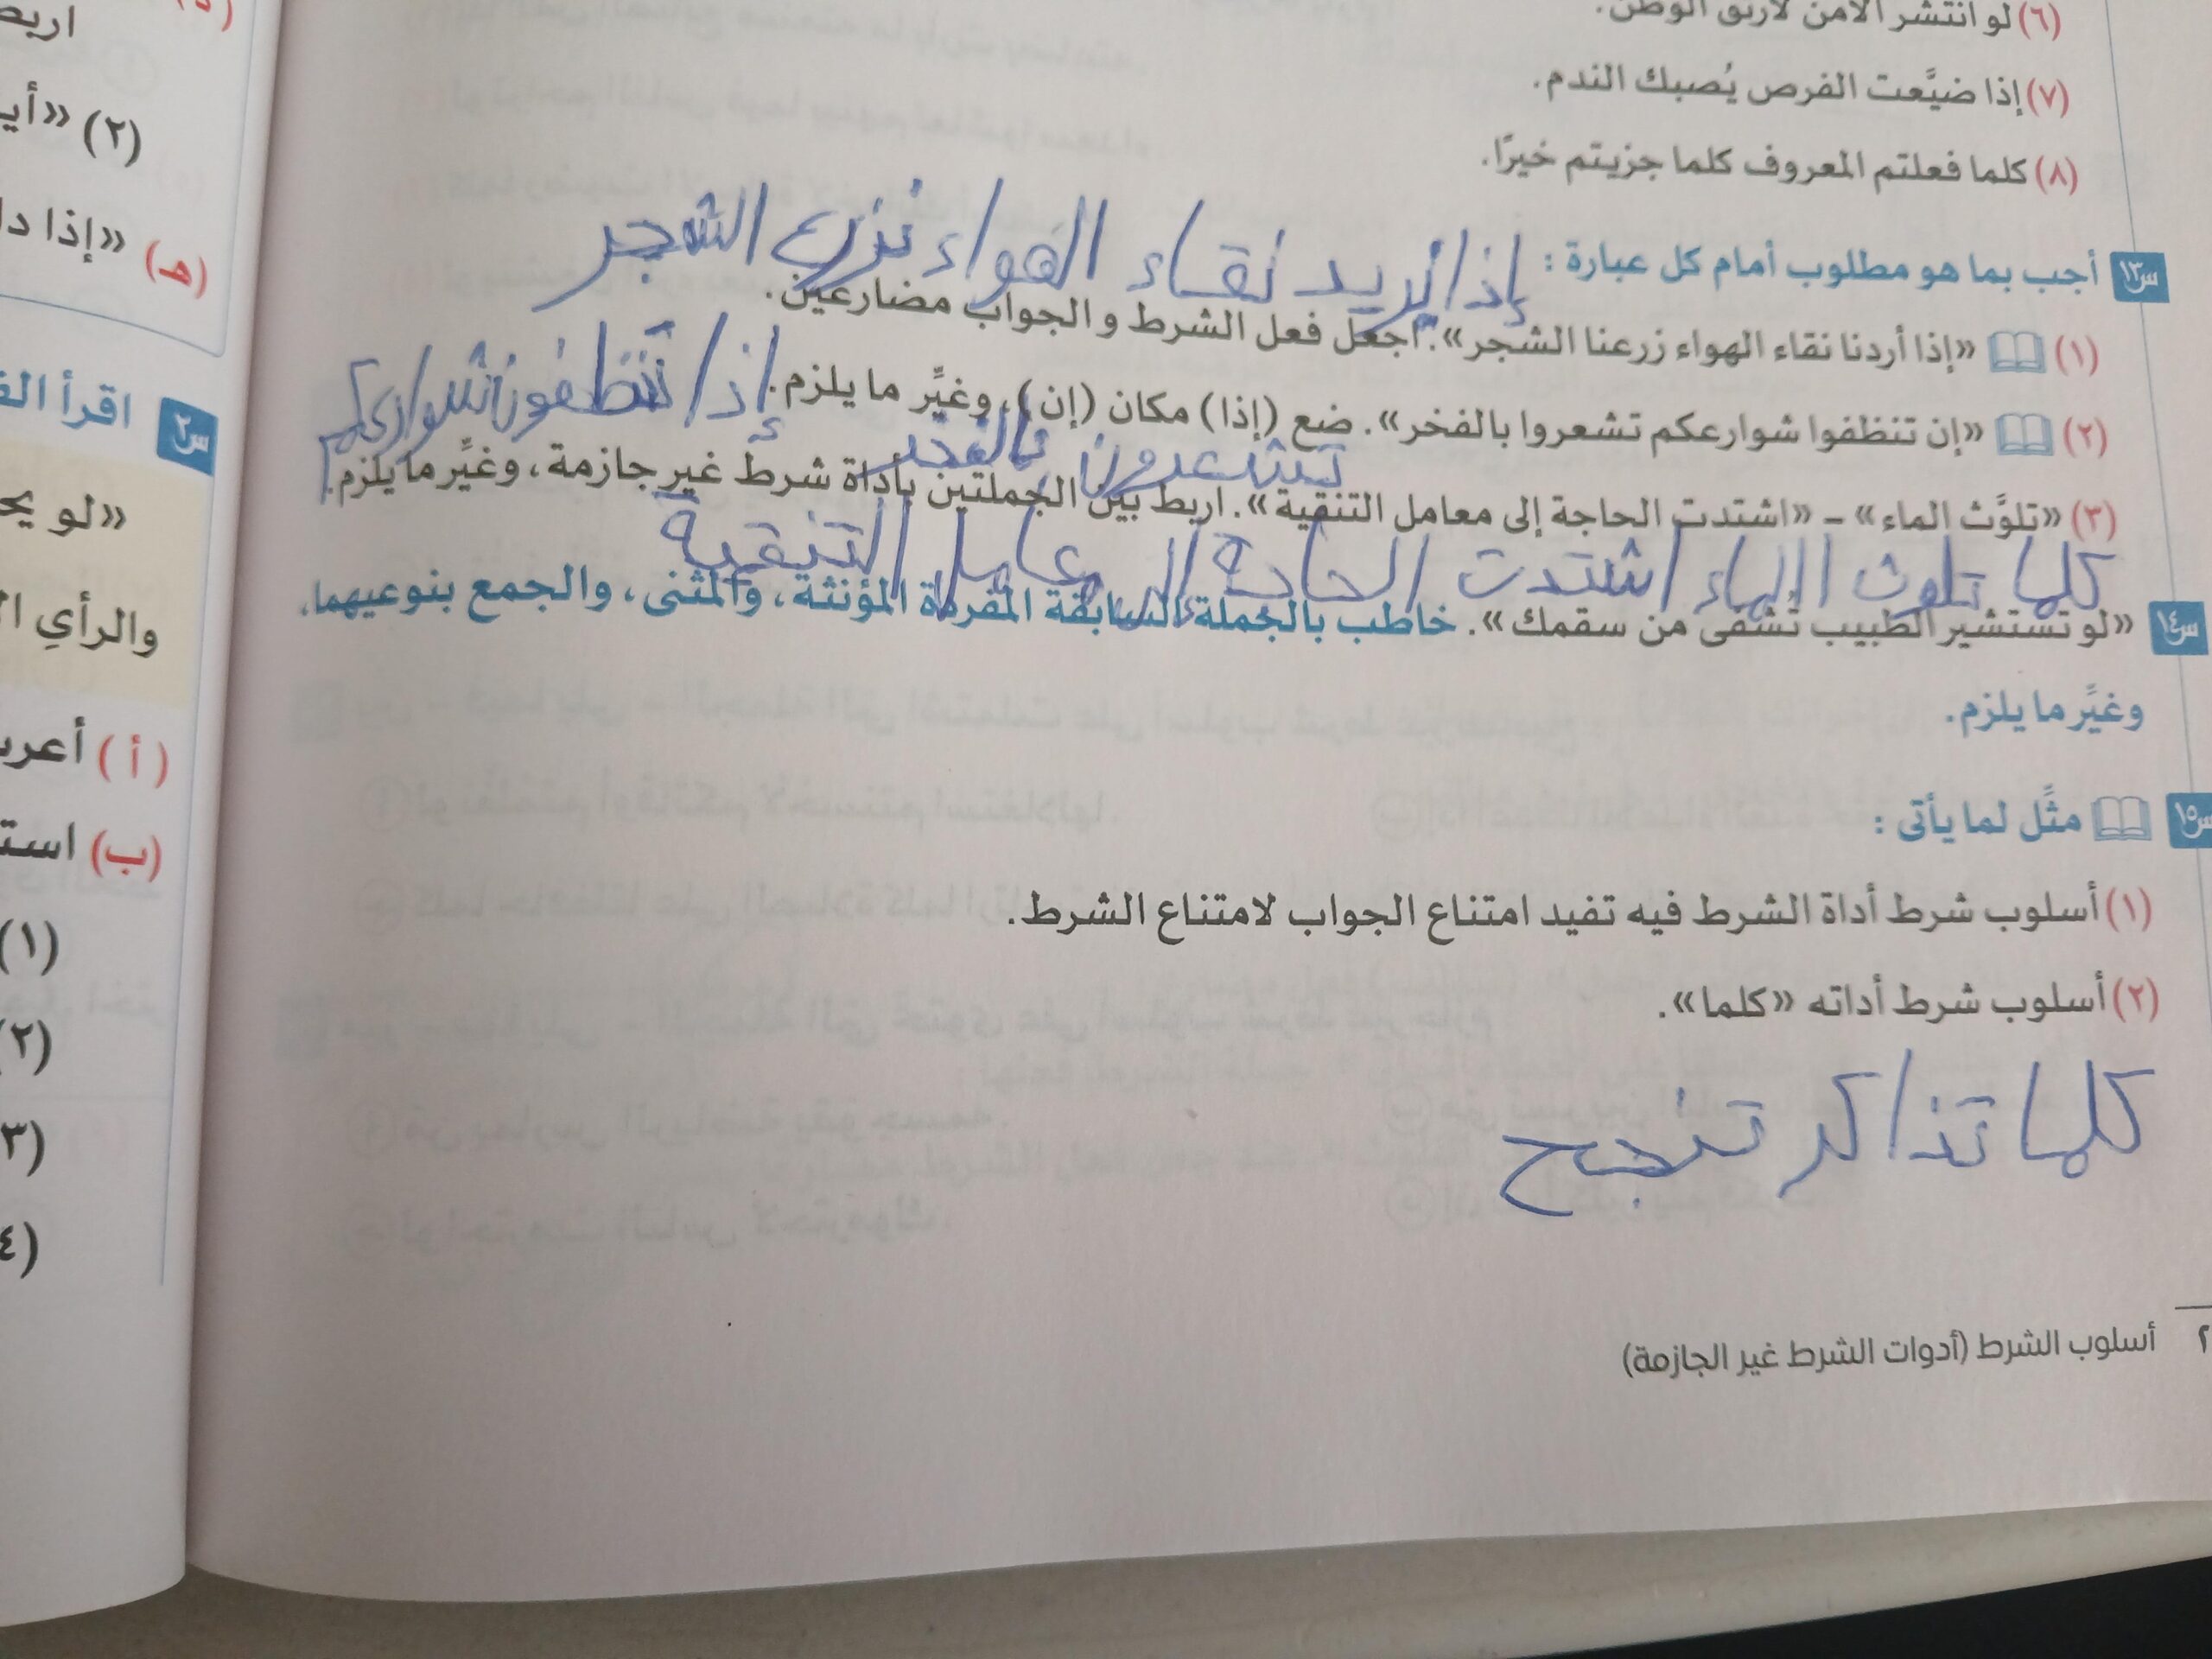 (٦) لو انتشر الأمن لارتقى الوطن.
(٧) إذا ضيَّعت الفرص يُصبك الندم.
(٨) كلما فعلتم المعروف كلما جزيتم خيرًا.
س١٣ أجب بما هو مطلوب أمام كل عبارة :
إذا نريد نقاء الهواء نزرع الشجر
(١) «إذا أردنا نقاء الهواء زرعنا الشجر». اجعل فعل الشرط والجواب مضارعين.
(٢) «إن تنظفوا شوارعكم تشعروا بالفخر». ضع (إذا) مكان (إن)، وغيِّر ما يلزم.
إذا تنظفون شوارعكم
تشعرون بالفخر
(٣) «تلوَّث الماء» – «اشتدت الحاجة إلى معامل التنقية». اربط بين الجملتين بأداة شرط غير جازمة، وغيِّر ما يلزم.
كلما تلوث الماء اشتدت الحاجة إلى معامل التنقية
س١٤ «لو تستشير الطبيب تشفى من سقمك». خاطب بالجملة السابقة المفردة المؤنثة، والمثنى، والجمع بنوعيهما،
وغيِّر ما يلزم.
س١٥ مثِّل لما يأتى :
(١) أسلوب شرط أداة الشرط فيه تفيد امتناع الجواب لامتناع الشرط.
(٢) أسلوب شرط أداته «كلما».
كلما تذاكر تنجح
٢ أسلوب الشرط (أدوات الشرط غير الجازمة)
(٢) «أي
(هـ) «إذا
س٢ اقرأ
«لو
والرأي
(أ) أعرب
(ب)
(١)
(٢)
(٣)
(٤)